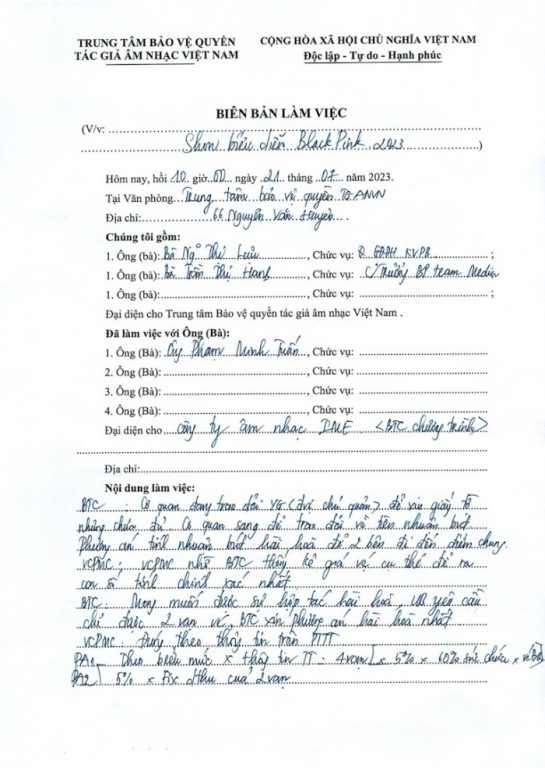 TRUNG TÂM BẢO VỆ QUYỀN
TÁC GIẢ ÂM NHẠC VIỆT NAM
CỘNG HÒA XÃ HỘI CHỦ NGHĨA VIỆT NAM
Độc lập - Tự do - Hạnh phúc
BIÊN BẢN LÀM VIỆC
(V/v:
Show biểu diễn BlackPink 2023)
Hôm nay, hồi 10 giờ 00 ngày 21 tháng 07 năm 2023.
Tại Văn phòng Trung tâm bảo vệ quyền TGANVN
Địa chỉ: 66 Nguyễn Văn Huyên
Chúng tôi gồm:
1. Ông (bà): Bà Ngô Thị Lựu, Chức vụ: KVPB ;
1. Ông (bà): Bà Trần Thị Hạnh, Chức vụ: Trưởng BP team Media
1. Ông (bà):, Chức vụ: ;
Đại diện cho Trung tâm Bảo vệ quyền tác giả âm nhạc Việt Nam .
Đã làm việc với Ông (Bà):
1. Ông (Bà): Ông Phạm Minh Tuấn, Chức vụ:
2. Ông (Bà):, Chức vụ:
3. Ông (Bà):, Chức vụ:
4. Ông (Bà):, Chức vụ:
Đại diện cho công ty âm nhạc IME <BTC chương trình>
Địa chỉ:
Nội dung làm việc:
BTC : Cơ quan đang trao đổi YG (đại chủ quản) để xin giấy tờ
nhưng chưa đủ. Cơ quan sang để trao đổi về tiền nhuận bút
Phương án tính nhuận bút hài hoà để 2 bên đi đến điểm chung.
VCPMC : VCPMC nhờ BTC thống kê giá vé cụ thể để ra
con số tính chính xác nhất
BTC : Mong muốn được sự hợp tác hài hoà yêu cầu
chỉ được 2 vạn vé, BTC xin phương án hài hoà nhất
VCPMC : theo thông tin trên PTTT
PA1 Theo biểu mức x thông tin TT : 4 vạn x 5% x 60% sức chứa x
PA2 5% x Fix dthu của 2 vạn